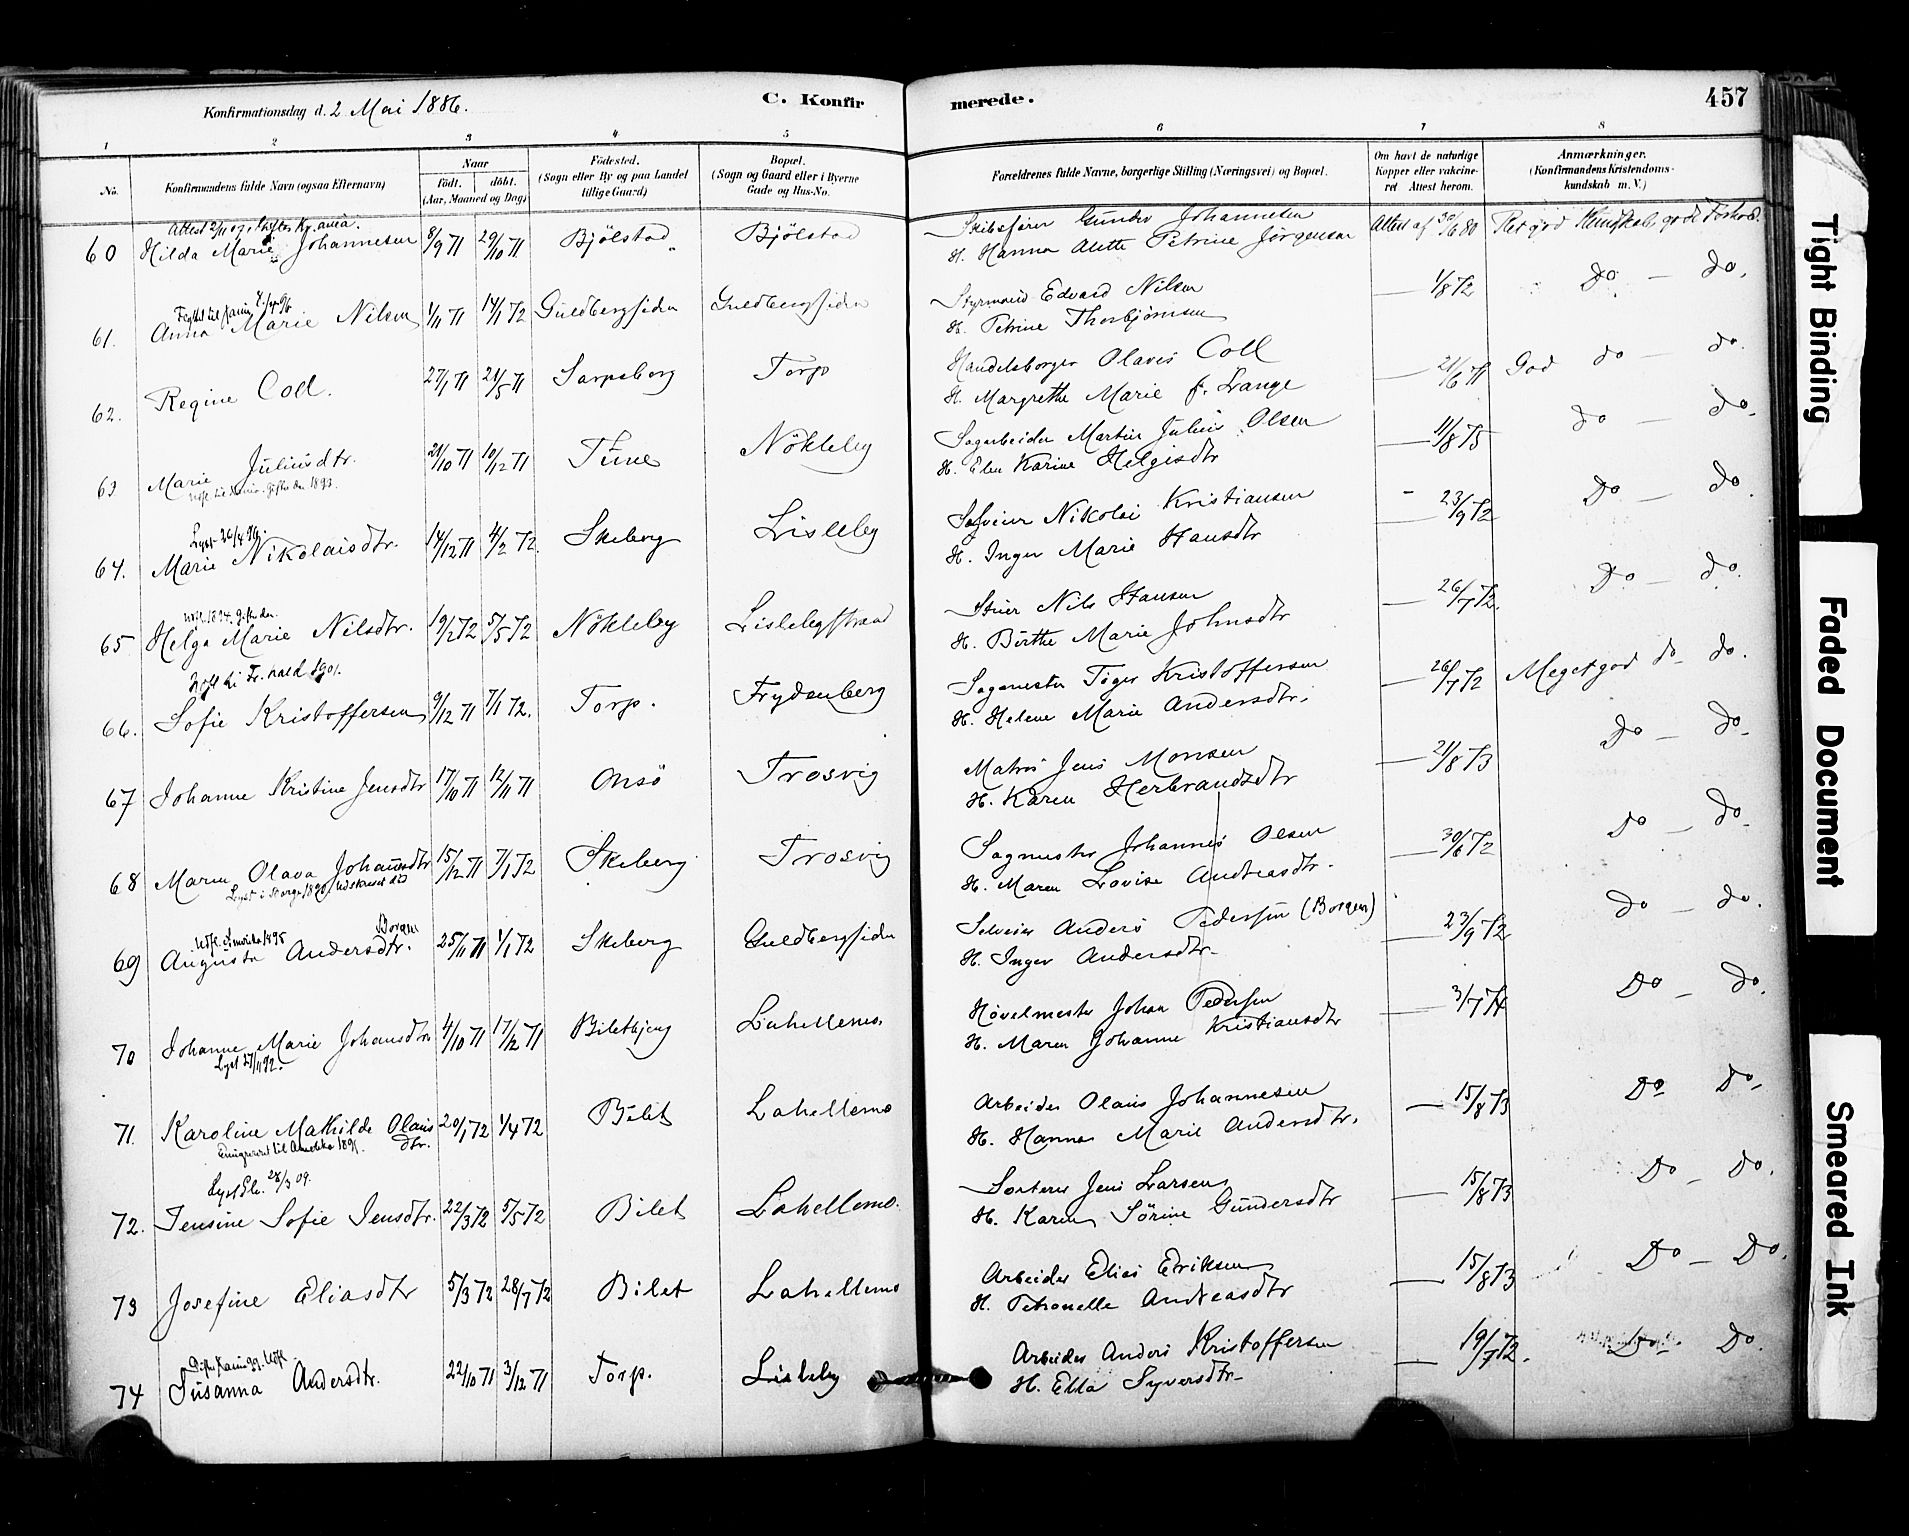 Konfirmationsdag d. 2 Mai 1886.
C. Konfirmerede.
457
1 2 3 4 5 6 7 8
No. Konfirmandens fulde Navn (ogsaa Efternavn) Naar født. døbt. (Aar, Maaned og Dag) Fødested. (Sogn eller By og paa Landet tillige Gaard) Bopæl. (Sogn og Gaard eller i Byerne Gade og Hus-No. Forældrenes fulde Navne, borgerlige Stilling (Næringsvei) og Bopæl. Om havt de naturlige Kopper eller vakcineret Attest herom. Anmærkninger. (Konfirmandens Kristendomskundskab m. V.)
Attest 2/11 07
60 Hilda Marie Johannesen 8/9 71 29/10 71 Bjölstad Bjölstad Skibsfører Gunder Johannesen Attest af 30/6 80 Ret god Kundskab, godt Forhold.
H. Hanna Alette Petrine Jørgensen
61. Anna Marie Nilsen 1/11 71 14/1 72 Guldbergsiden Guldbergsiden Styrmand Edvard Nilsen 1/8 72 Do — do.
H. Petrine Thorbjørnsen
62. Regine Coll. 27/1 71 21/5 71 Sarpsborg Torp Handelsborger Olaves Coll 21/6 71 God do — do.
H. Margrethe Marie f. Lange
63 Marie Juliusdtr. 21/10 71 10/12 71 Tune Nökleby Sagarbeider Martin Julius Olsen 11/8 75 do — do.
gift den 1893.
H. Elen Karine Helgesdtr
Lyst 26/4 96
64. Marie Nikolaisdtr. 14/12 71 4/2 72. Skeberg Lisleby Nikolai Kristiansen 23/9 72 Do — do.
H. Inger Marie Hansdtr
65 Helga Marie Nilsdtr. 19/2 72 5/5 72 Nökleby Lislebystrand Stuer Nils Hansen 26/7 72. Do — do.
H. Birthe Marie Johnsdtr
Udfl. til Fr.hald 1901.
66. Sofie Kristoffersen 9/12 71 7/1 72. Torp. Frydenberg Sagmester Töger Kristoffersen 26/7 72 Meget god do — do.
H. Helene Marie Andersdtr.
67 Johanne Kristine Jensdtr 17/10 71 12/11 71 Onsö Trosvig Matros Jens Monsen 21/8 73 Do — do.
H. Karen Herbrandsdtr
68 Maren Olava Johansdtr 15/12 71 7/1 72 Skeberg Trosvig Sagmester Johannes Olsen 30/6 72 Do — do.
H. Maren Lovise Andreasdtr.
Udfl. Amerika 1895 Borgen
69 Augusta Andersdtr. 25/11 71 1/1 72 Skeberg Guldbergsiden Anders Pedersen (Borgen) 23/9 72 Do — do.
H. Inger Andersdtr.
70 Johanne Marie Johansdtr 4/10 71 17/12 71 Biletbjerg Lahellemo. Høvelmester Johan Pedersen 3/7 74 Do — do.
Lyst 27/11 92.
H. Maren Johanne Kristiansdtr
71. Karoline Mathilde Olausdtr. 20/1 72 1/4 72 Bilet Lahellemo Arbeider Olaus Johannesen 15/8 73 Do — do.
Emigreret til Amerika
H. Hanna Marie Andersdtr.
28/3 09.
72. Jensine Sofie Jensdtr. 22/3 72 5/5 72 Bilet Lahellemo. Sorterer Jens Larsen 15/8 73 Do — do.
H. Karen Sörine Gundersdtr
73 Josefine Eliasdtr 5/3 72 28/7 72 Bilet Lahellemo Arbeider Elias Eriksen 15/8 73 Do — Do.
H. Petronelle Andreasdtr
74 Susanna Andersdtr. 22/10 71 3/12 71 Torp. Lisleby Arbeider Anders Kristoffersen 19/7 72. Do — Do.
H. Ella Syversdtr.
Tight Binding
Faded Document
Smeared Ink